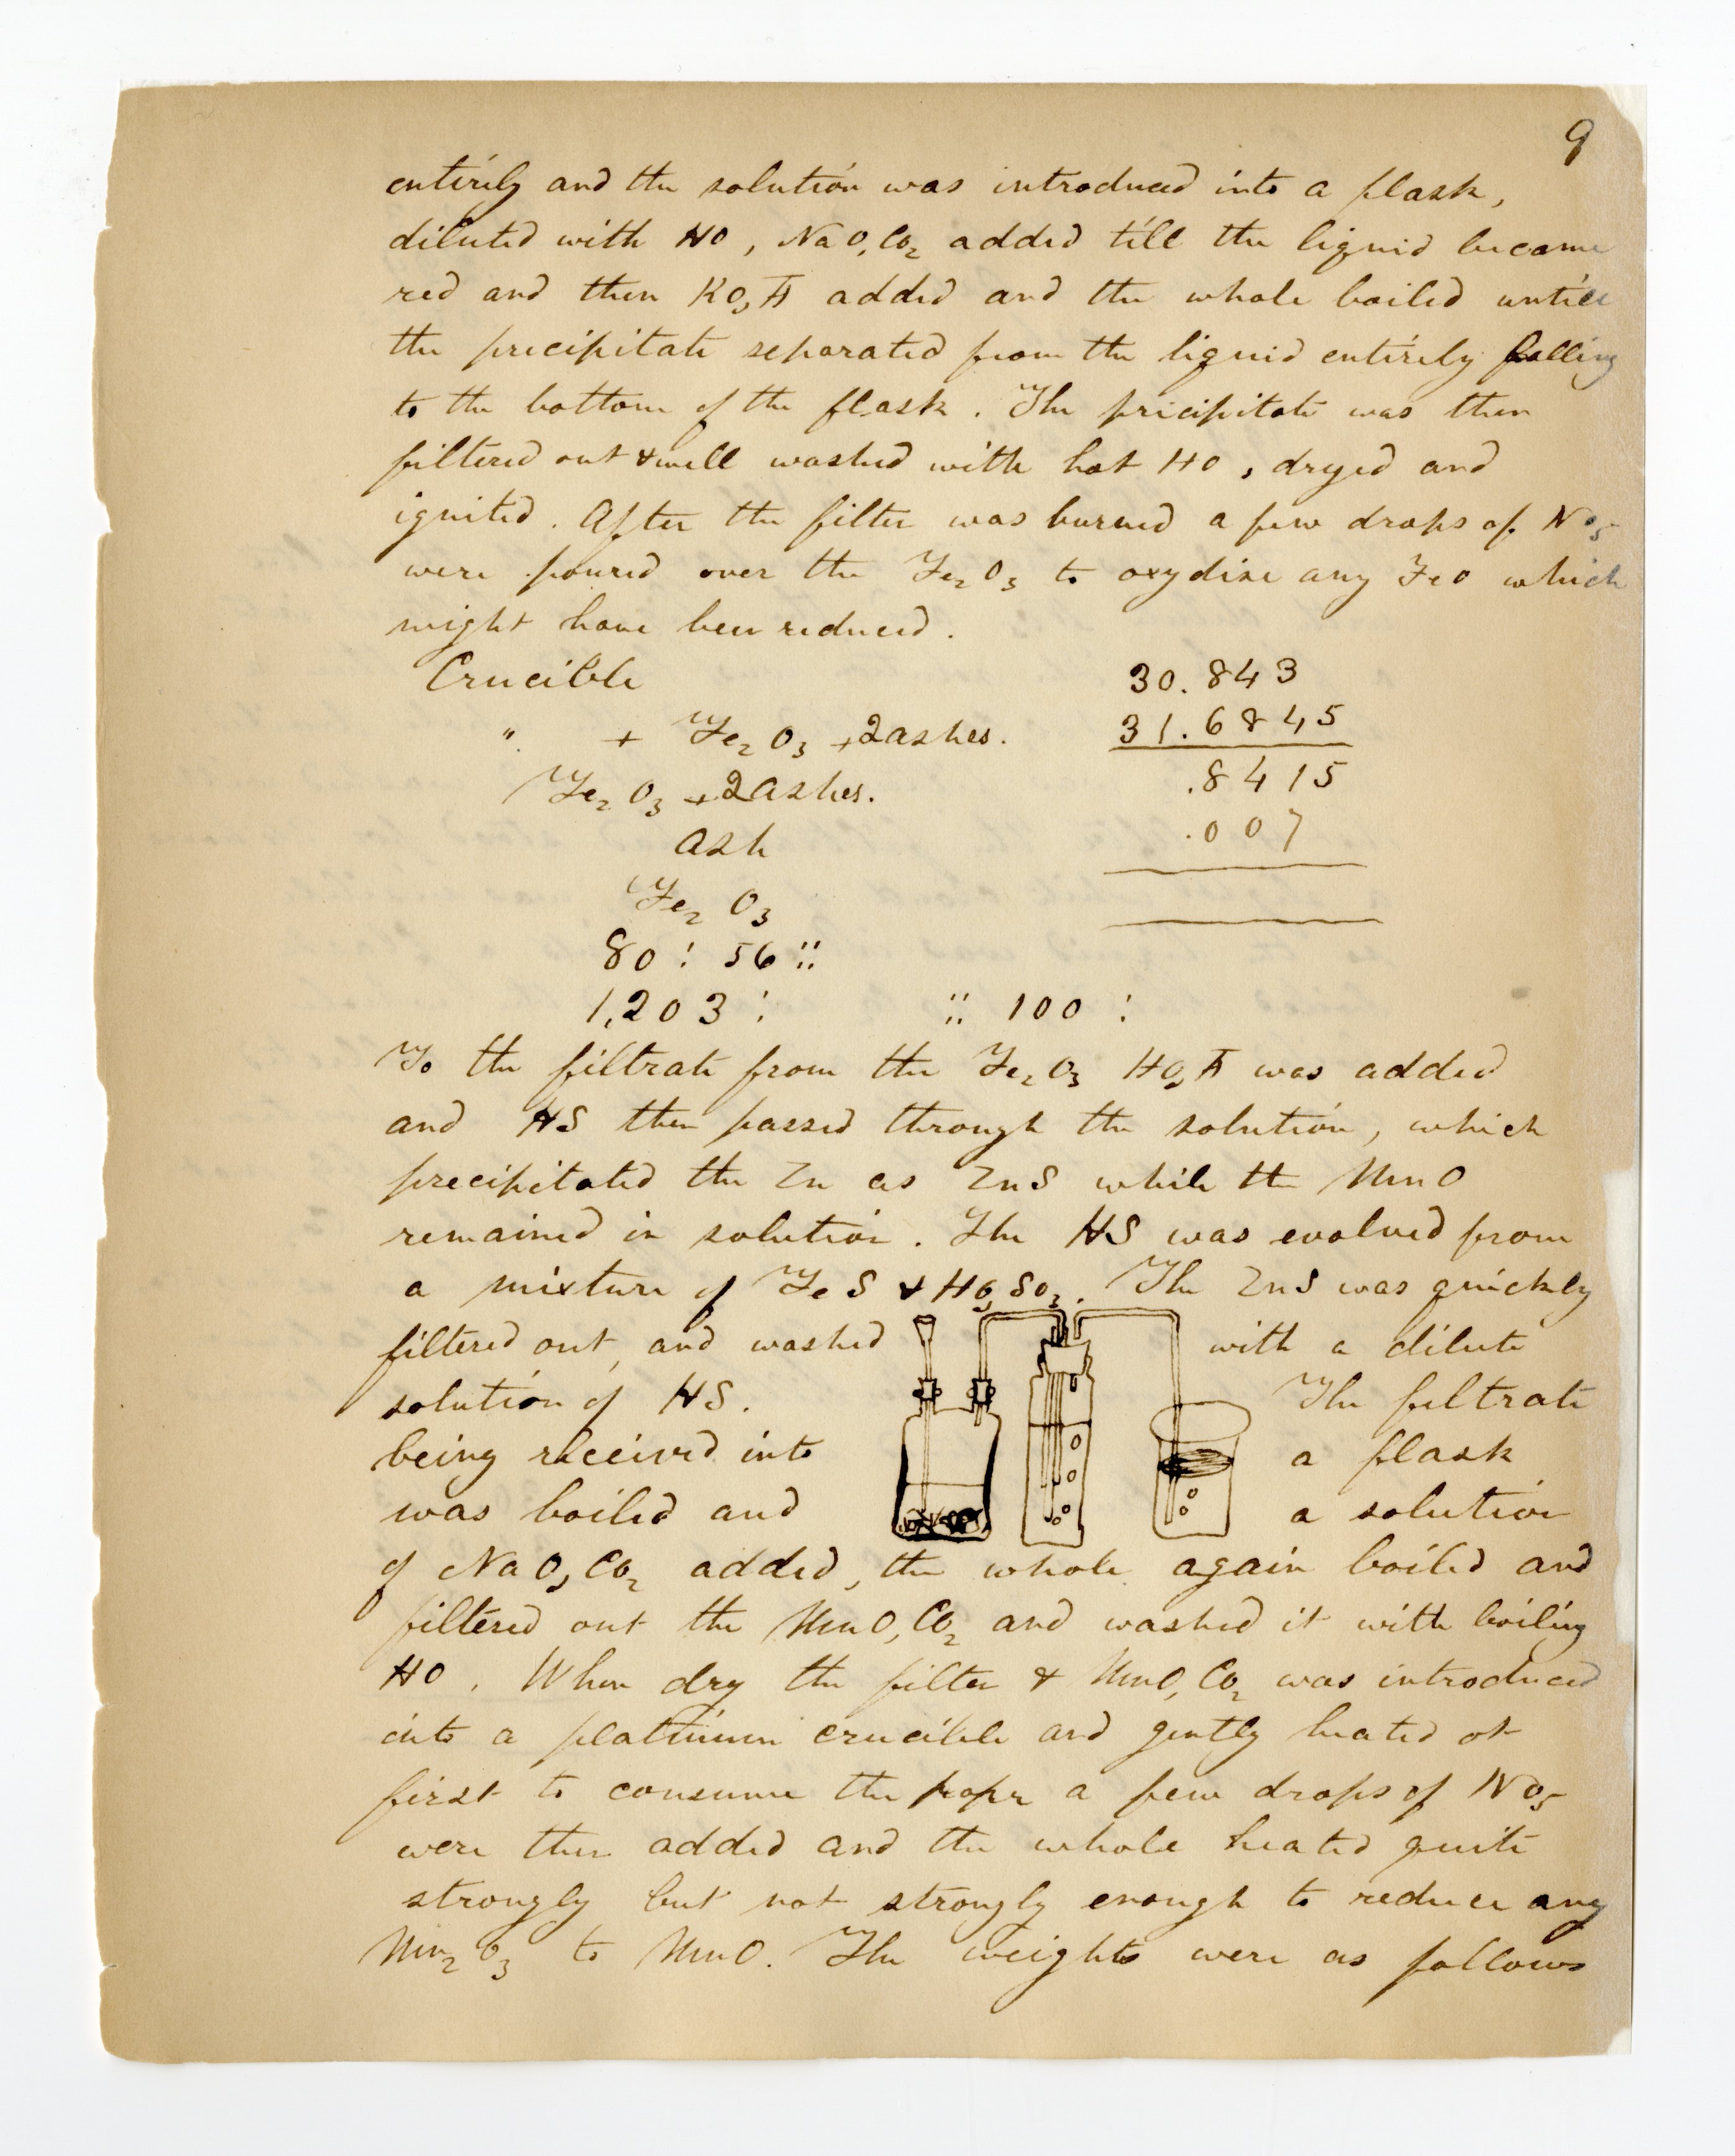 9
entirely and the solution was introduced into a flask,
diluted with HO, NaO,CO₂ added till the liquid became
red and then KO,Ā added and the whole boiled untill
the precipitate separated from the liquid entirely falling
to the bottom of the flask. The pricipitate was then
filtered out & well washed with hot HO, dryed and
ignited. After the filter was burned a few drops of NO₅
were poured over the Fe₂O₃ to oxydise any FeO which
might have been reduced.
Crucible 30.843
" + Fe₂O₃ + 2 ashes. 31.6845
Fe₂O₃ + 2 ashes. .8415
Ash .007
Fe₂O₃
80 : 56 ::
1,203 : :: 100 :
To the filtrate from the Fe₂O₃ HO,Ā was added
and HS then passed through the solution, which
precipitated the Zn as ZnS while the MnO
remained in solution. The HS was evolved from
a mixture of FeS & HO,SO₃. The ZnS was quickly
filtered out, and washed with a dilute
solution of HS. The filtrate
being received into a flask
was boiled and a solution
of NaO,CO₂ added, the whole again boiled and
filtered out the MnO,CO₂ and washed it with boiling
HO. When dry the filter & MnO,CO₂ was introduced
into a platinum crucible and gently heated at
first to consume the paper a few drops of NO₅
were then added and the whole heated quite
strongly but not strongly enough to reduce any
Mn₂O₃ to MnO. The weights were as follows